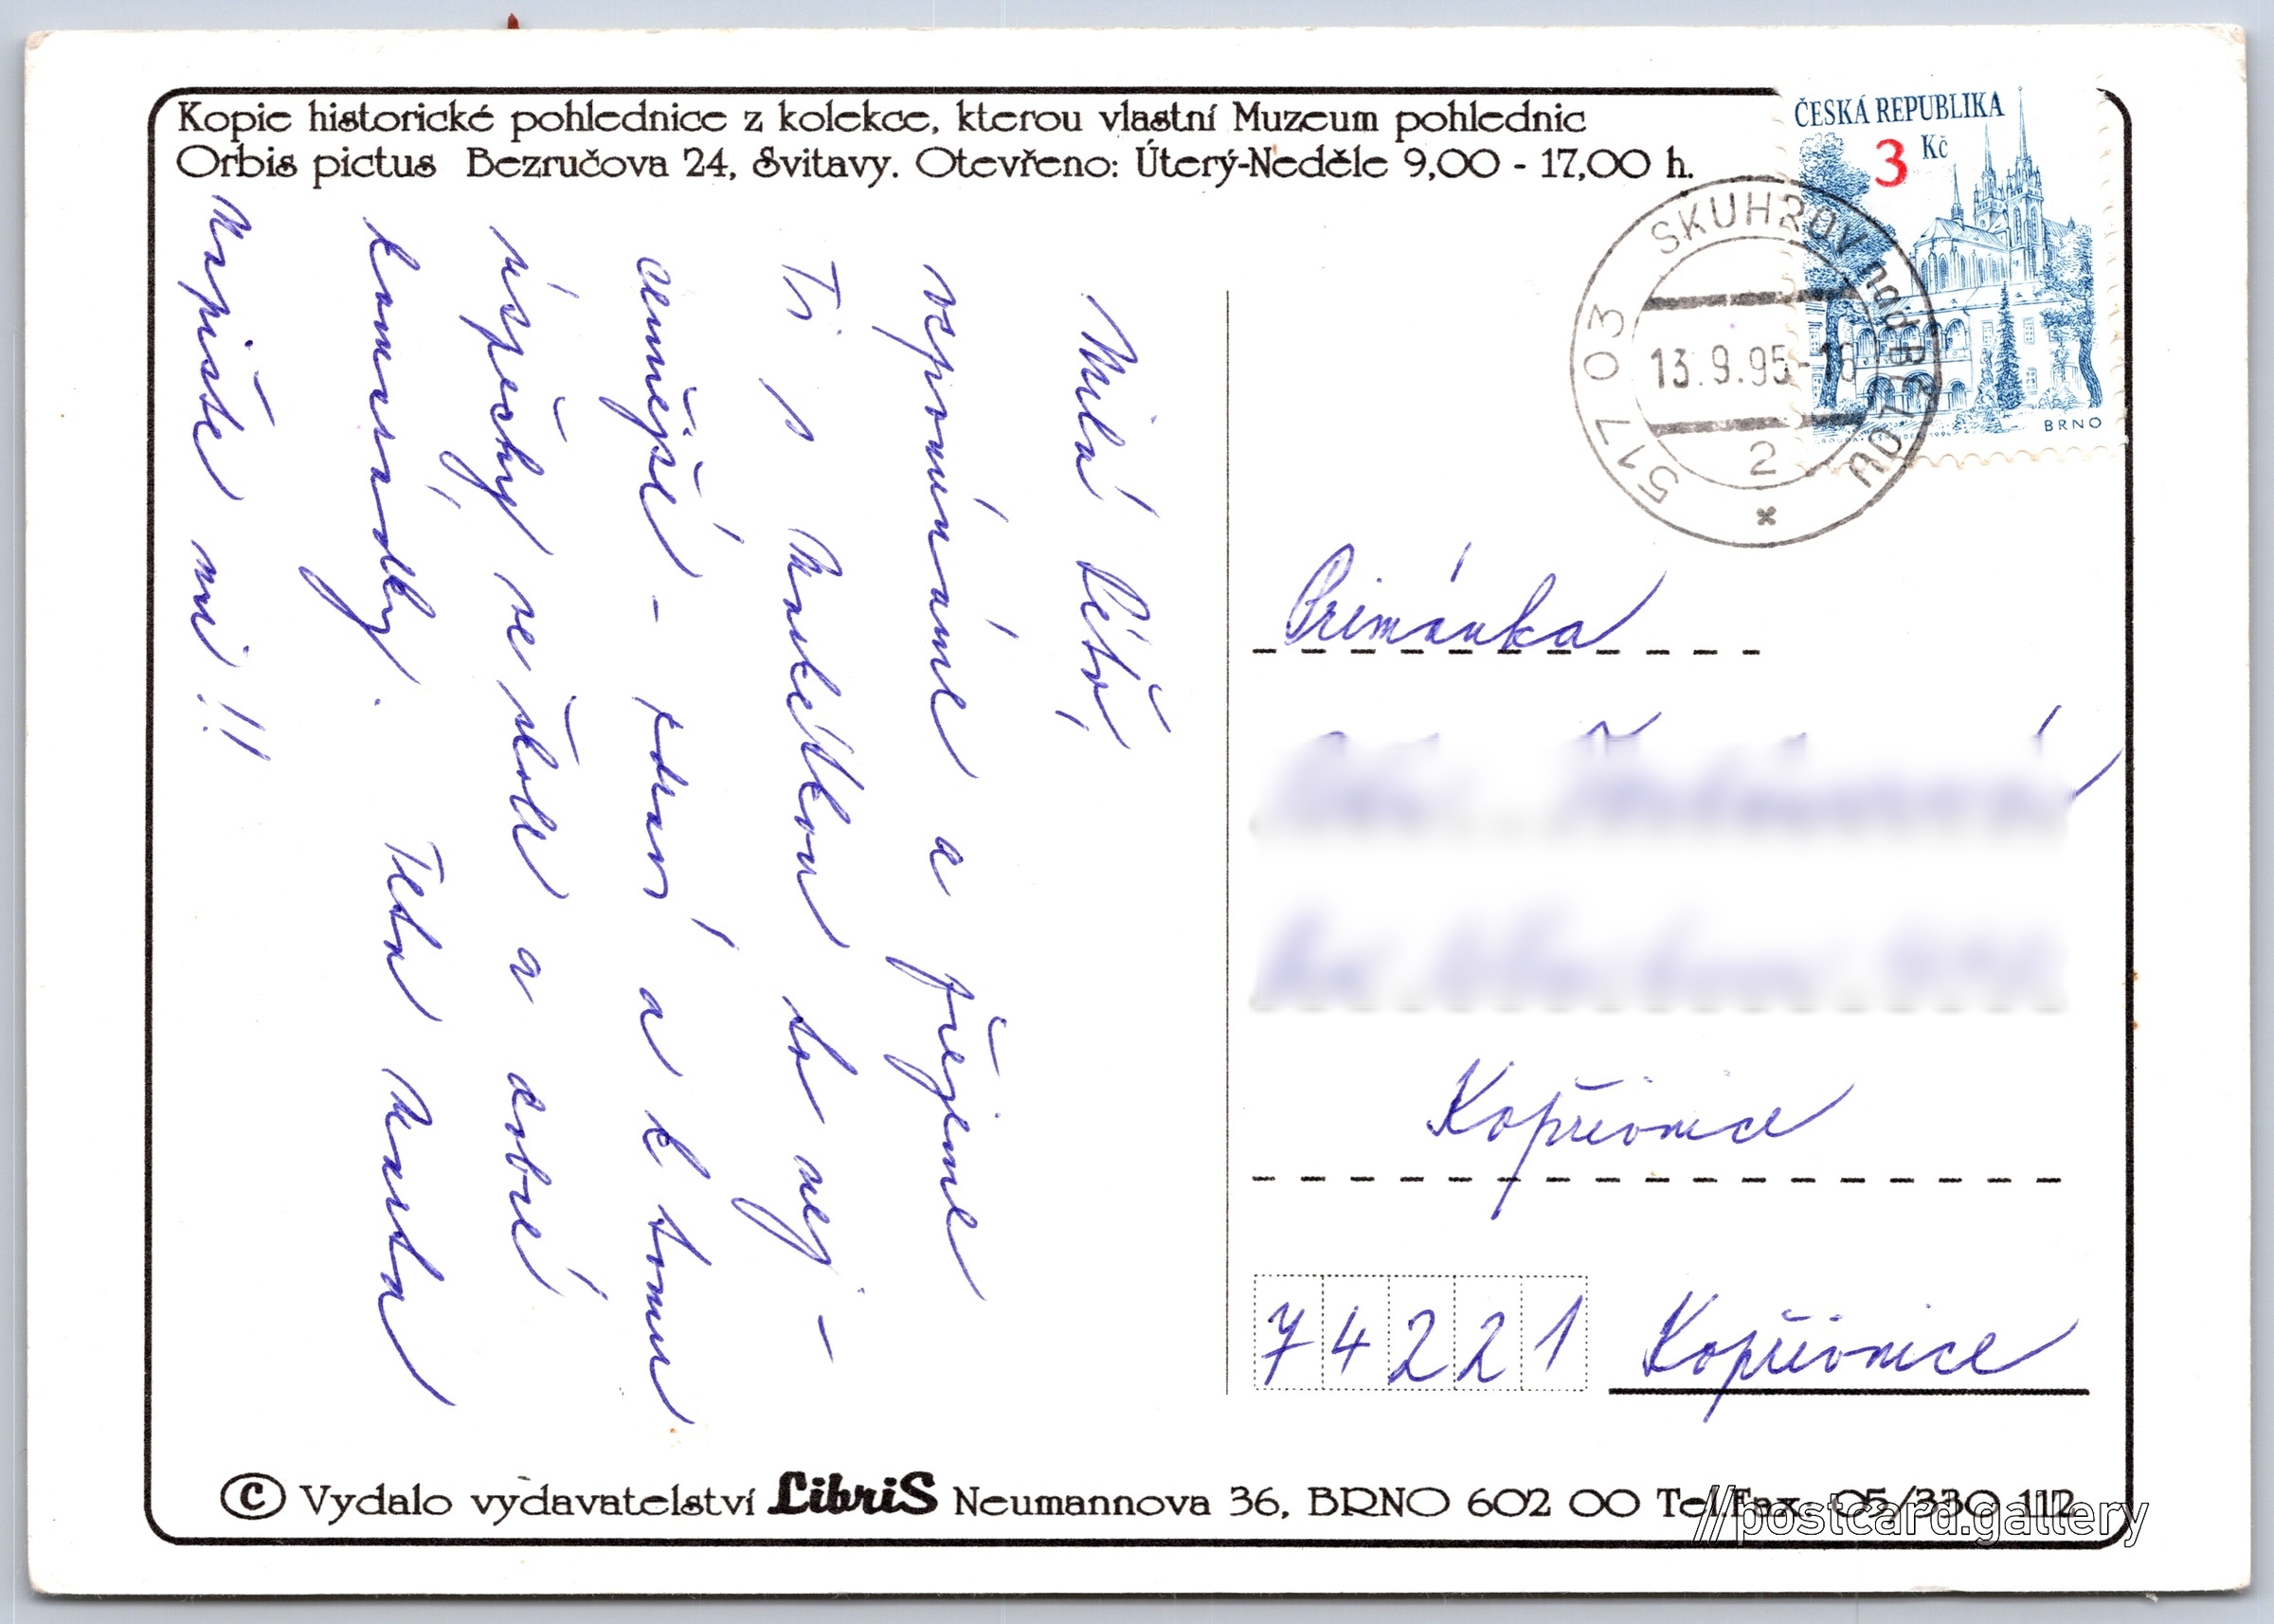 Kopie historické pohlednice z kolekce, kterou vlastní Muzeum pohlednic
Orbis pictus Bezručova 24, Svitavy. Otevřeno: Úterý-Neděle 9,00 - 17,00 h.
ČESKÁ REPUBLIKA
3 Kč
BRNO
517 03 SKUHROV nad BĚLOU
13.9.95-16
2
Milá Péťo,
vzpomínáme a přejeme
Ti s to nej-
cennější - zdraví a k tomu
úspěchy ve škole a dobré
kamarádky. Teta Vlasta
Napište mi!!
Primánka
Kopřivnice
74221 Kopřivnice
© Vydalo vydavatelství LibriS Neumannova 36, BRNO 602 00 Tel.Fax. 05/330 112
//postcard.gallery